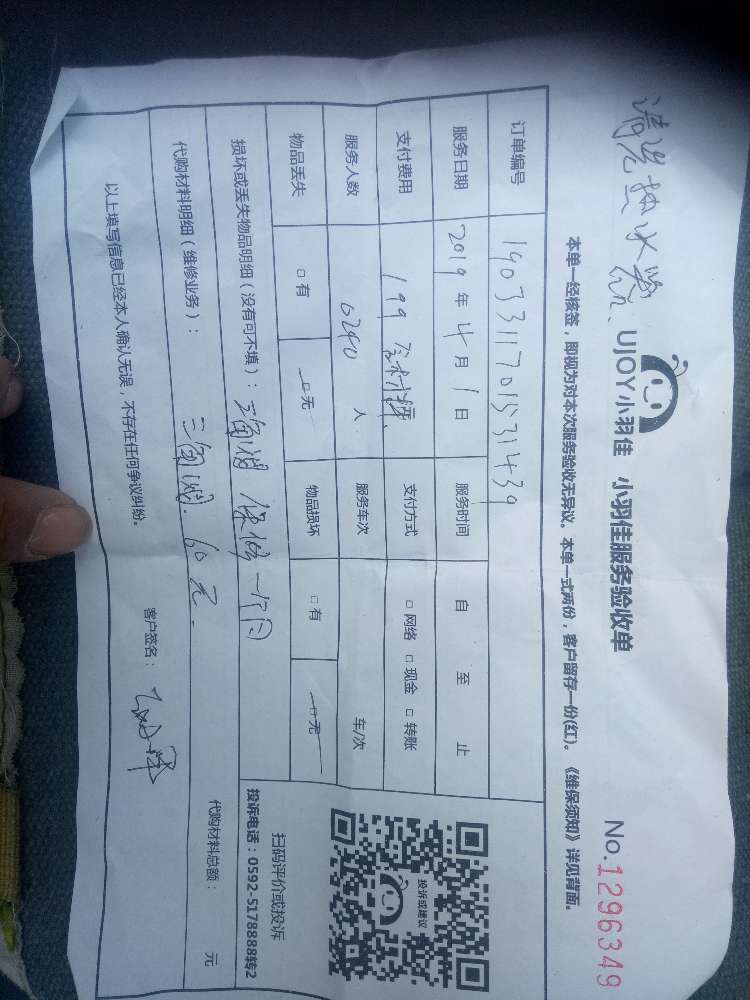 清洗热水器
UJOY小羽佳 小羽佳服务验收单 No.1296349
本单一经核签，即视为对本次服务验收无异议。本单一式两份，客户留存一份(红)。《维保须知》详见背面。
订单编号 190331170151431439
服务日期 2019年4月1日 服务时间 自 至 止
支付费用 199 支付方式 □网络 □现金 □转账
服务人数 6240 人 服务车次 车/次
物品丢失 □有 □无 物品损坏 □有 □无
损坏或丢失物品明细（没有可不填）：三角阀 保修一个月
代购材料明细（维修业务）：三角阀. 60元. 代购材料总额： 元
以上填写信息已经本人确认无误，不存在任何争议纠纷。 客户签名：
投诉或建议
扫码评价或投诉
投诉电话：0592-5178888转2